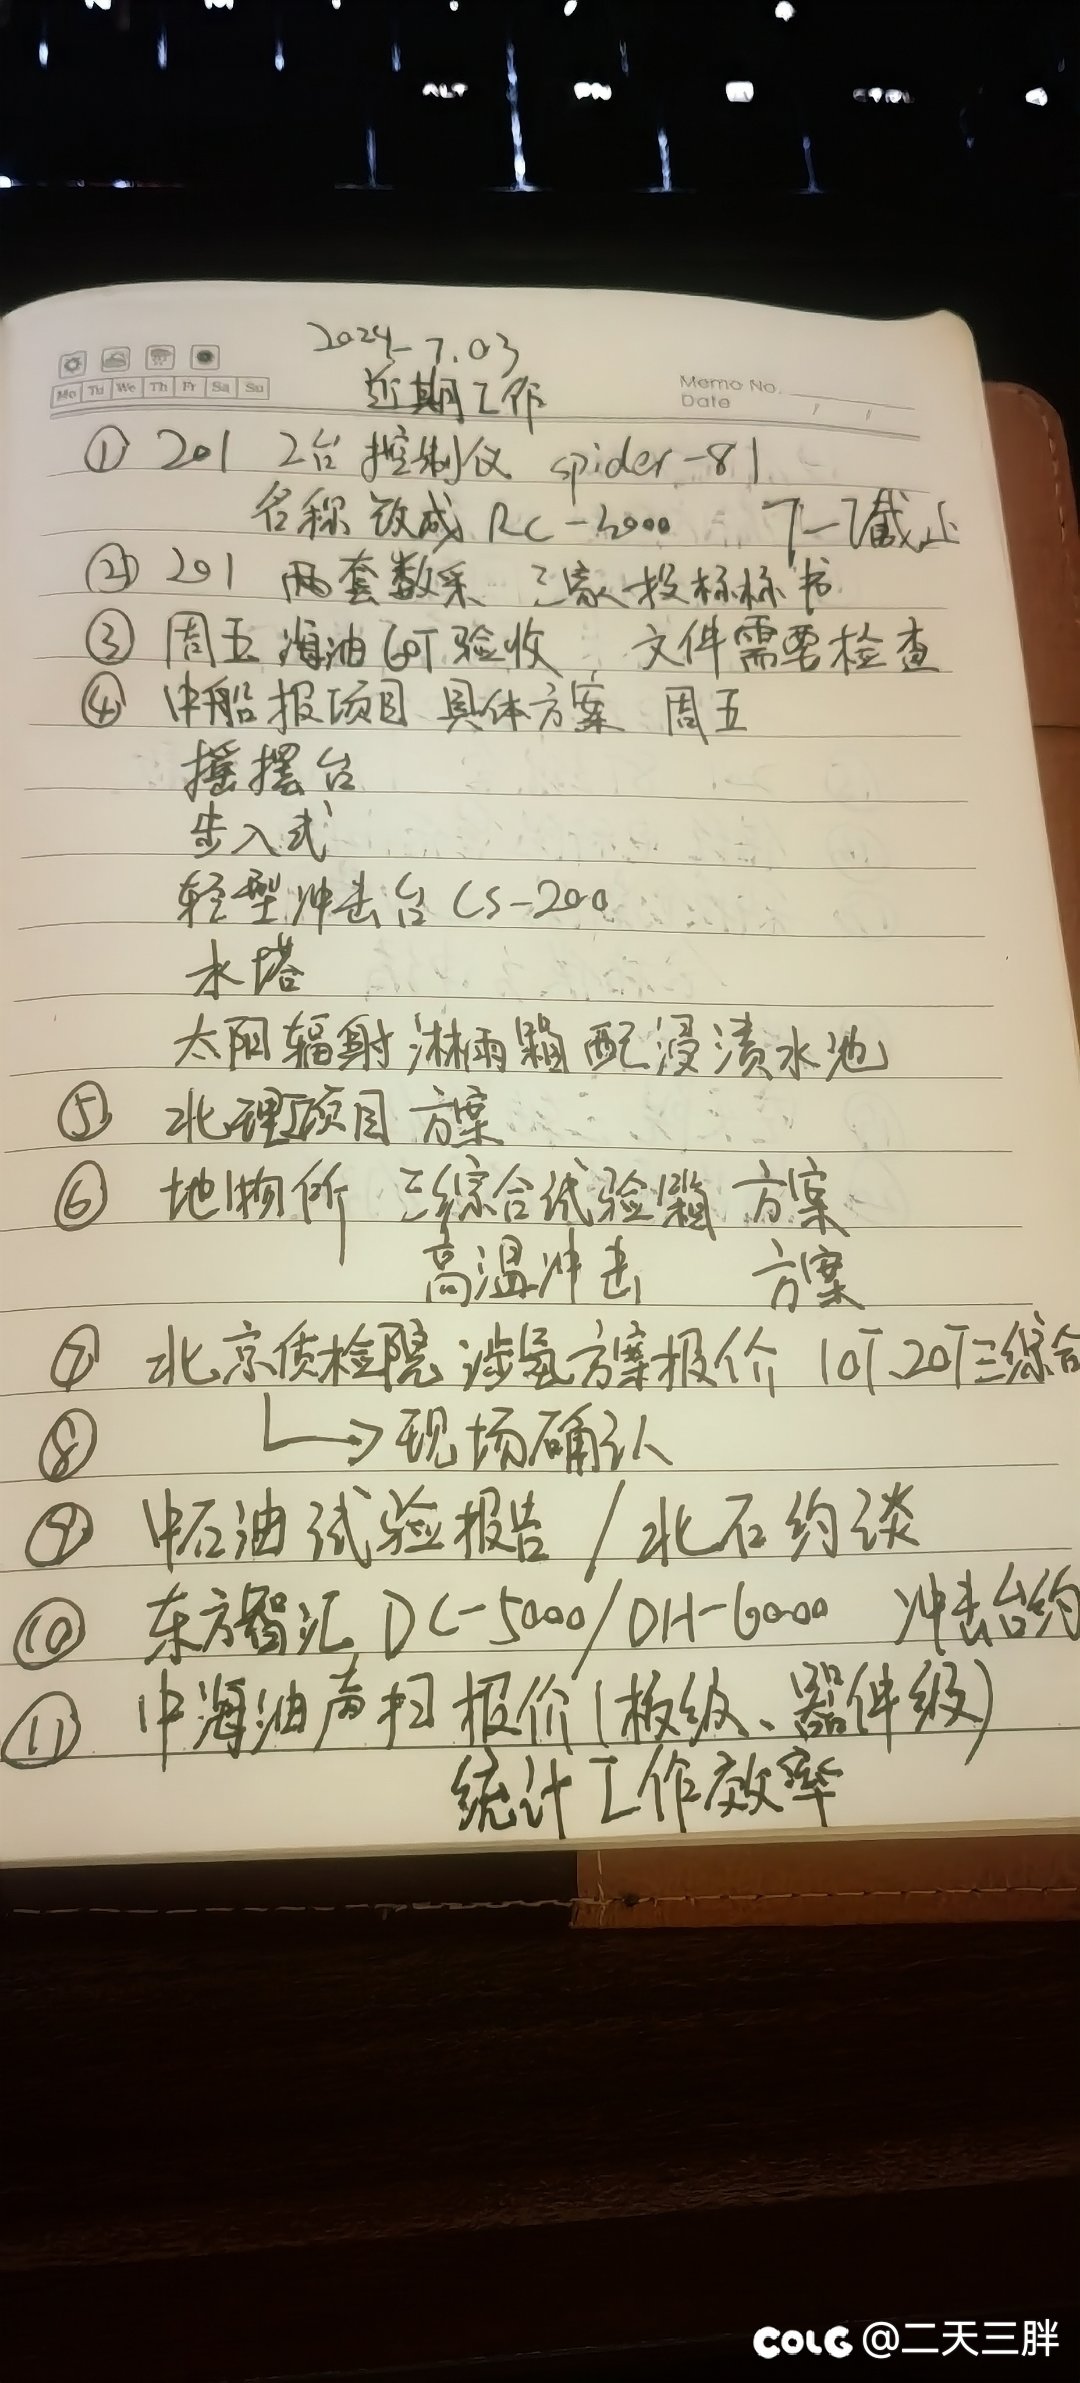 ALT FN CTRL
2024-7.03
Mo Tu We Th Fr Sa Su
近期工作
Memo No.
Date / /
① 201 2台控制仪 spider-81
名称改成RC-3000 7-7截止
② 201 两套数采 三家投标标书
③ 周五海油60T验收 文件需要检查
④ 中船报项目 具体方案 周五
摇摆台
步入式
轻型冲击台CS-200
水塔
太阳辐射 淋雨箱 配浸渍水池
⑤ 北理项目 方案
⑥ 地物所 三综合试验箱 方案
高温冲击 方案
⑦ 北京质检院 涉氢方案报价 10T、20T三综合
⑧ 现场确认
⑨ 中石油试验报告/北石约谈
⑩ 东方智汇 DC-5000/DH-6000 冲击台约
⑪ 中海油声扫报价(板级、器件级)
统计工作效率
COLG @二天三胖